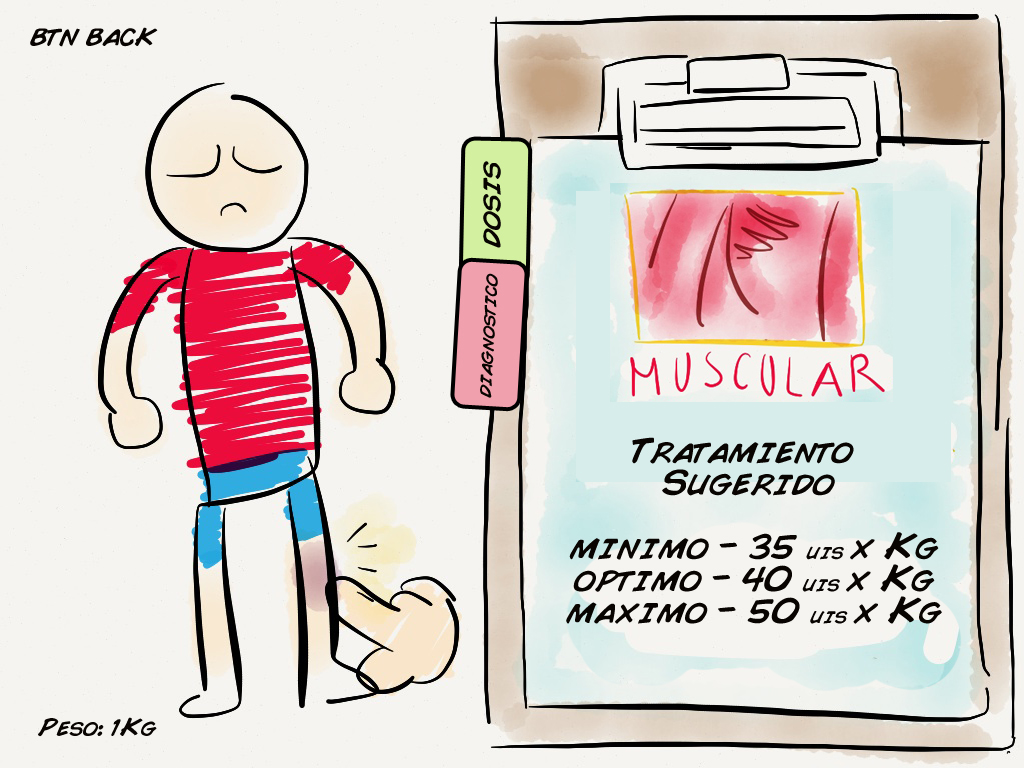 BTN BACK
DOSIS
DIAGNOSTICO
MUSCULAR
TRATAMIENTO
SUGERIDO
MINIMO - 35 UIS X KG
OPTIMO - 40 UIS X KG
MAXIMO - 50 UIS X KG
PESO: 1KG